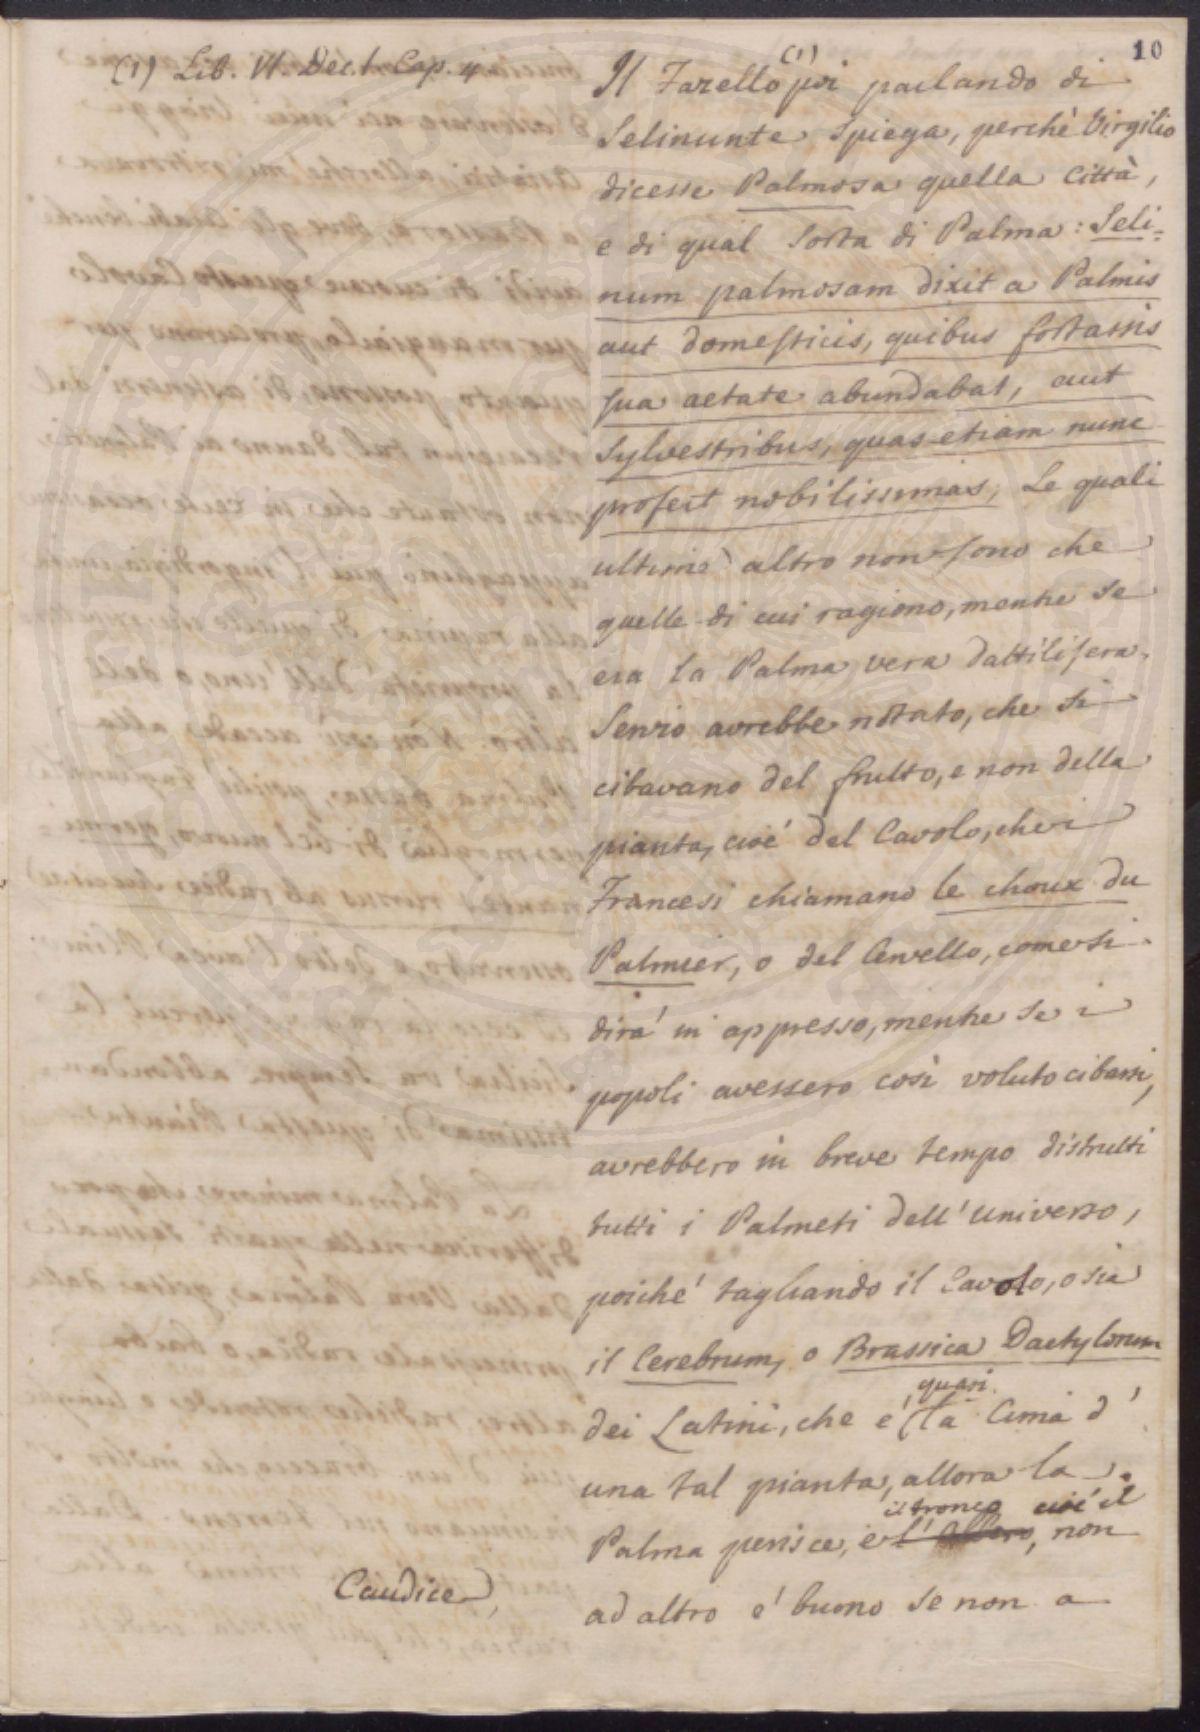 10
(1) Lib. VI. Dec. I. Cap. 4
Il Fazello (1) poi parlando di
Selinunte spiega, perchè Virgilio
dicesse Palmosa quella Città,
e di qual sorta di Palma: Seli=
num palmosam dixit a Palmis
aut domesticis, quibus fortassis
sua aetate abundabat, aut
sylvestribus, quas etiam nunc
profert nobilissimas; Le quali
ultime altro non sono che
quelle di cui ragiono, mentre se
era la Palma vera dattilifera,
Servio avrebbe notato, che si
cibavano del frutto, e non della
pianta, cioè del Cavolo, che i
Francesi chiamano le choux du
Palmier, o del Cervello, come si
dirà in appresso, mentre se i
popoli avessero così voluto cibarsi,
avrebbero in breve tempo distrutti
tutti i Palmeti dell'universo,
poichè tagliando il Cavolo, o sia
il Cerebrum, o Brassica Dactylorum
quasi
dei Latini, che è la Cima d'
una tal pianta, allora la
il tronco cioè il
Palma perisce, e l'Albero, non
Caudice,
ad altro è buono se non a